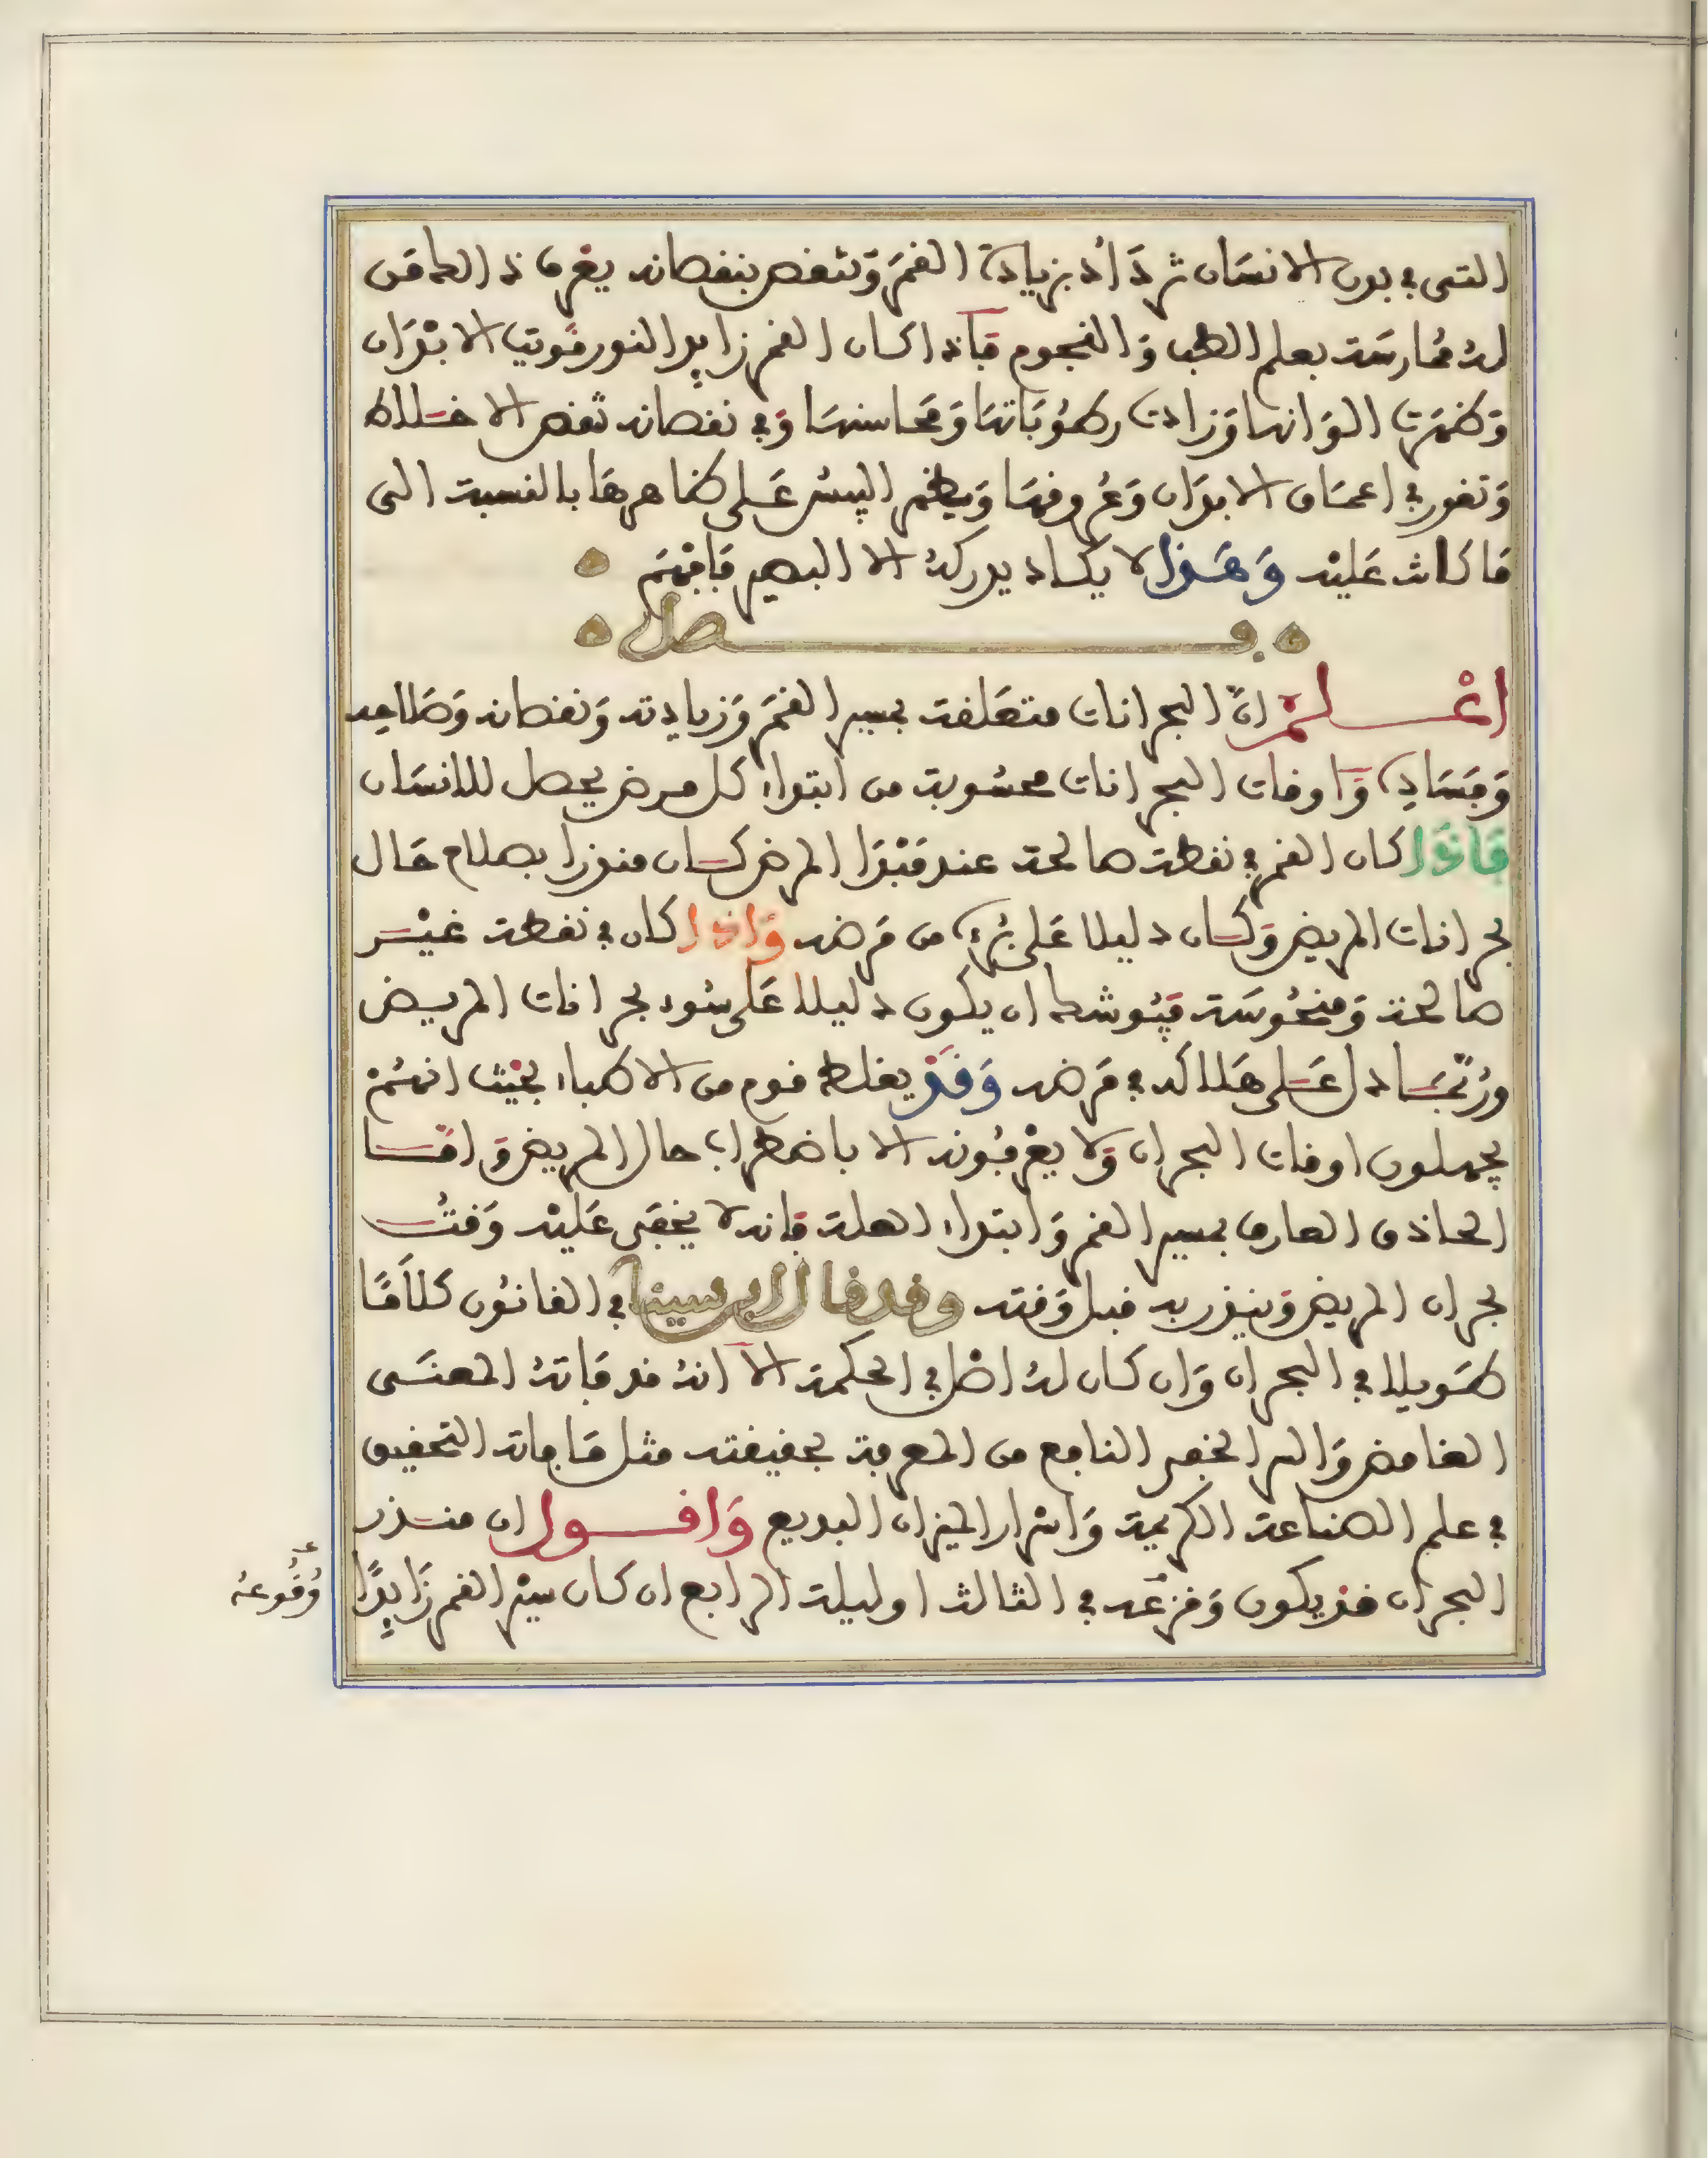 التى في بدن الانسان تزداد بزيادة القمر وتنقص بنقصانه يعرف ذالك من
له ممارسة بعلم الطب والنجوم فإذا كان القمر زايد النور قويت الابدان
وظهرت الوانها وزادت رطوباتها ومحاسنها وفي نقصانه تنقص الاخلاط
وتغور في اعماق الابدان وعروقها ويظهر اليبس على ظاهرها بالنسبة الى
ما كانت عليه وهذا لا يكاد يدركه الا البصير فافهم
فصل
اعلم ان البحرانات متعلقة بمسير القمر وزيادته ونقصانه وصلاحه
وفساده واوقات البحرانات محسوبة من ابتداء كل مرض يحصل للانسان
فاذا كان القمر في نقطة صالحة عند مبدا المرض كان منذرا بصلاح حال
بحرانات المريض وكان دليلا على برء من مرضه واذا كان في نقطة غير
صالحة ومنحوسة فيوشك ان يكون دليلا على سوء بحرانات المريض
وربما دل على هلاكه في مرضه وقد يغلط قوم من الاطباء بحيث انهم
يجهلون اوقات البحران ولا يعرفونه الا باضطراب حال المريض واما
الحاذق العارف بمسير القمر وابتداء العلة فانه لا يخفى عليه وقت
بحران المريض وينذر به قبل وقته وقد قال ابن سينا في القانون كلاما
طويلا في البحران وان كان له اصل في الحكمة الا انه قد فاته المعنى
الغامض والسر الخفى النافع من المعرفة بحقيقته مثل ما فاته التحقيق
في علم الصناعة الكريمة واسرار الميزان البديع واقول ان منذر
البحران قد يكون وقزعه في الثالث او ليلة الرابع ان كان سير القمر زايدًا
وُقُوعهُ